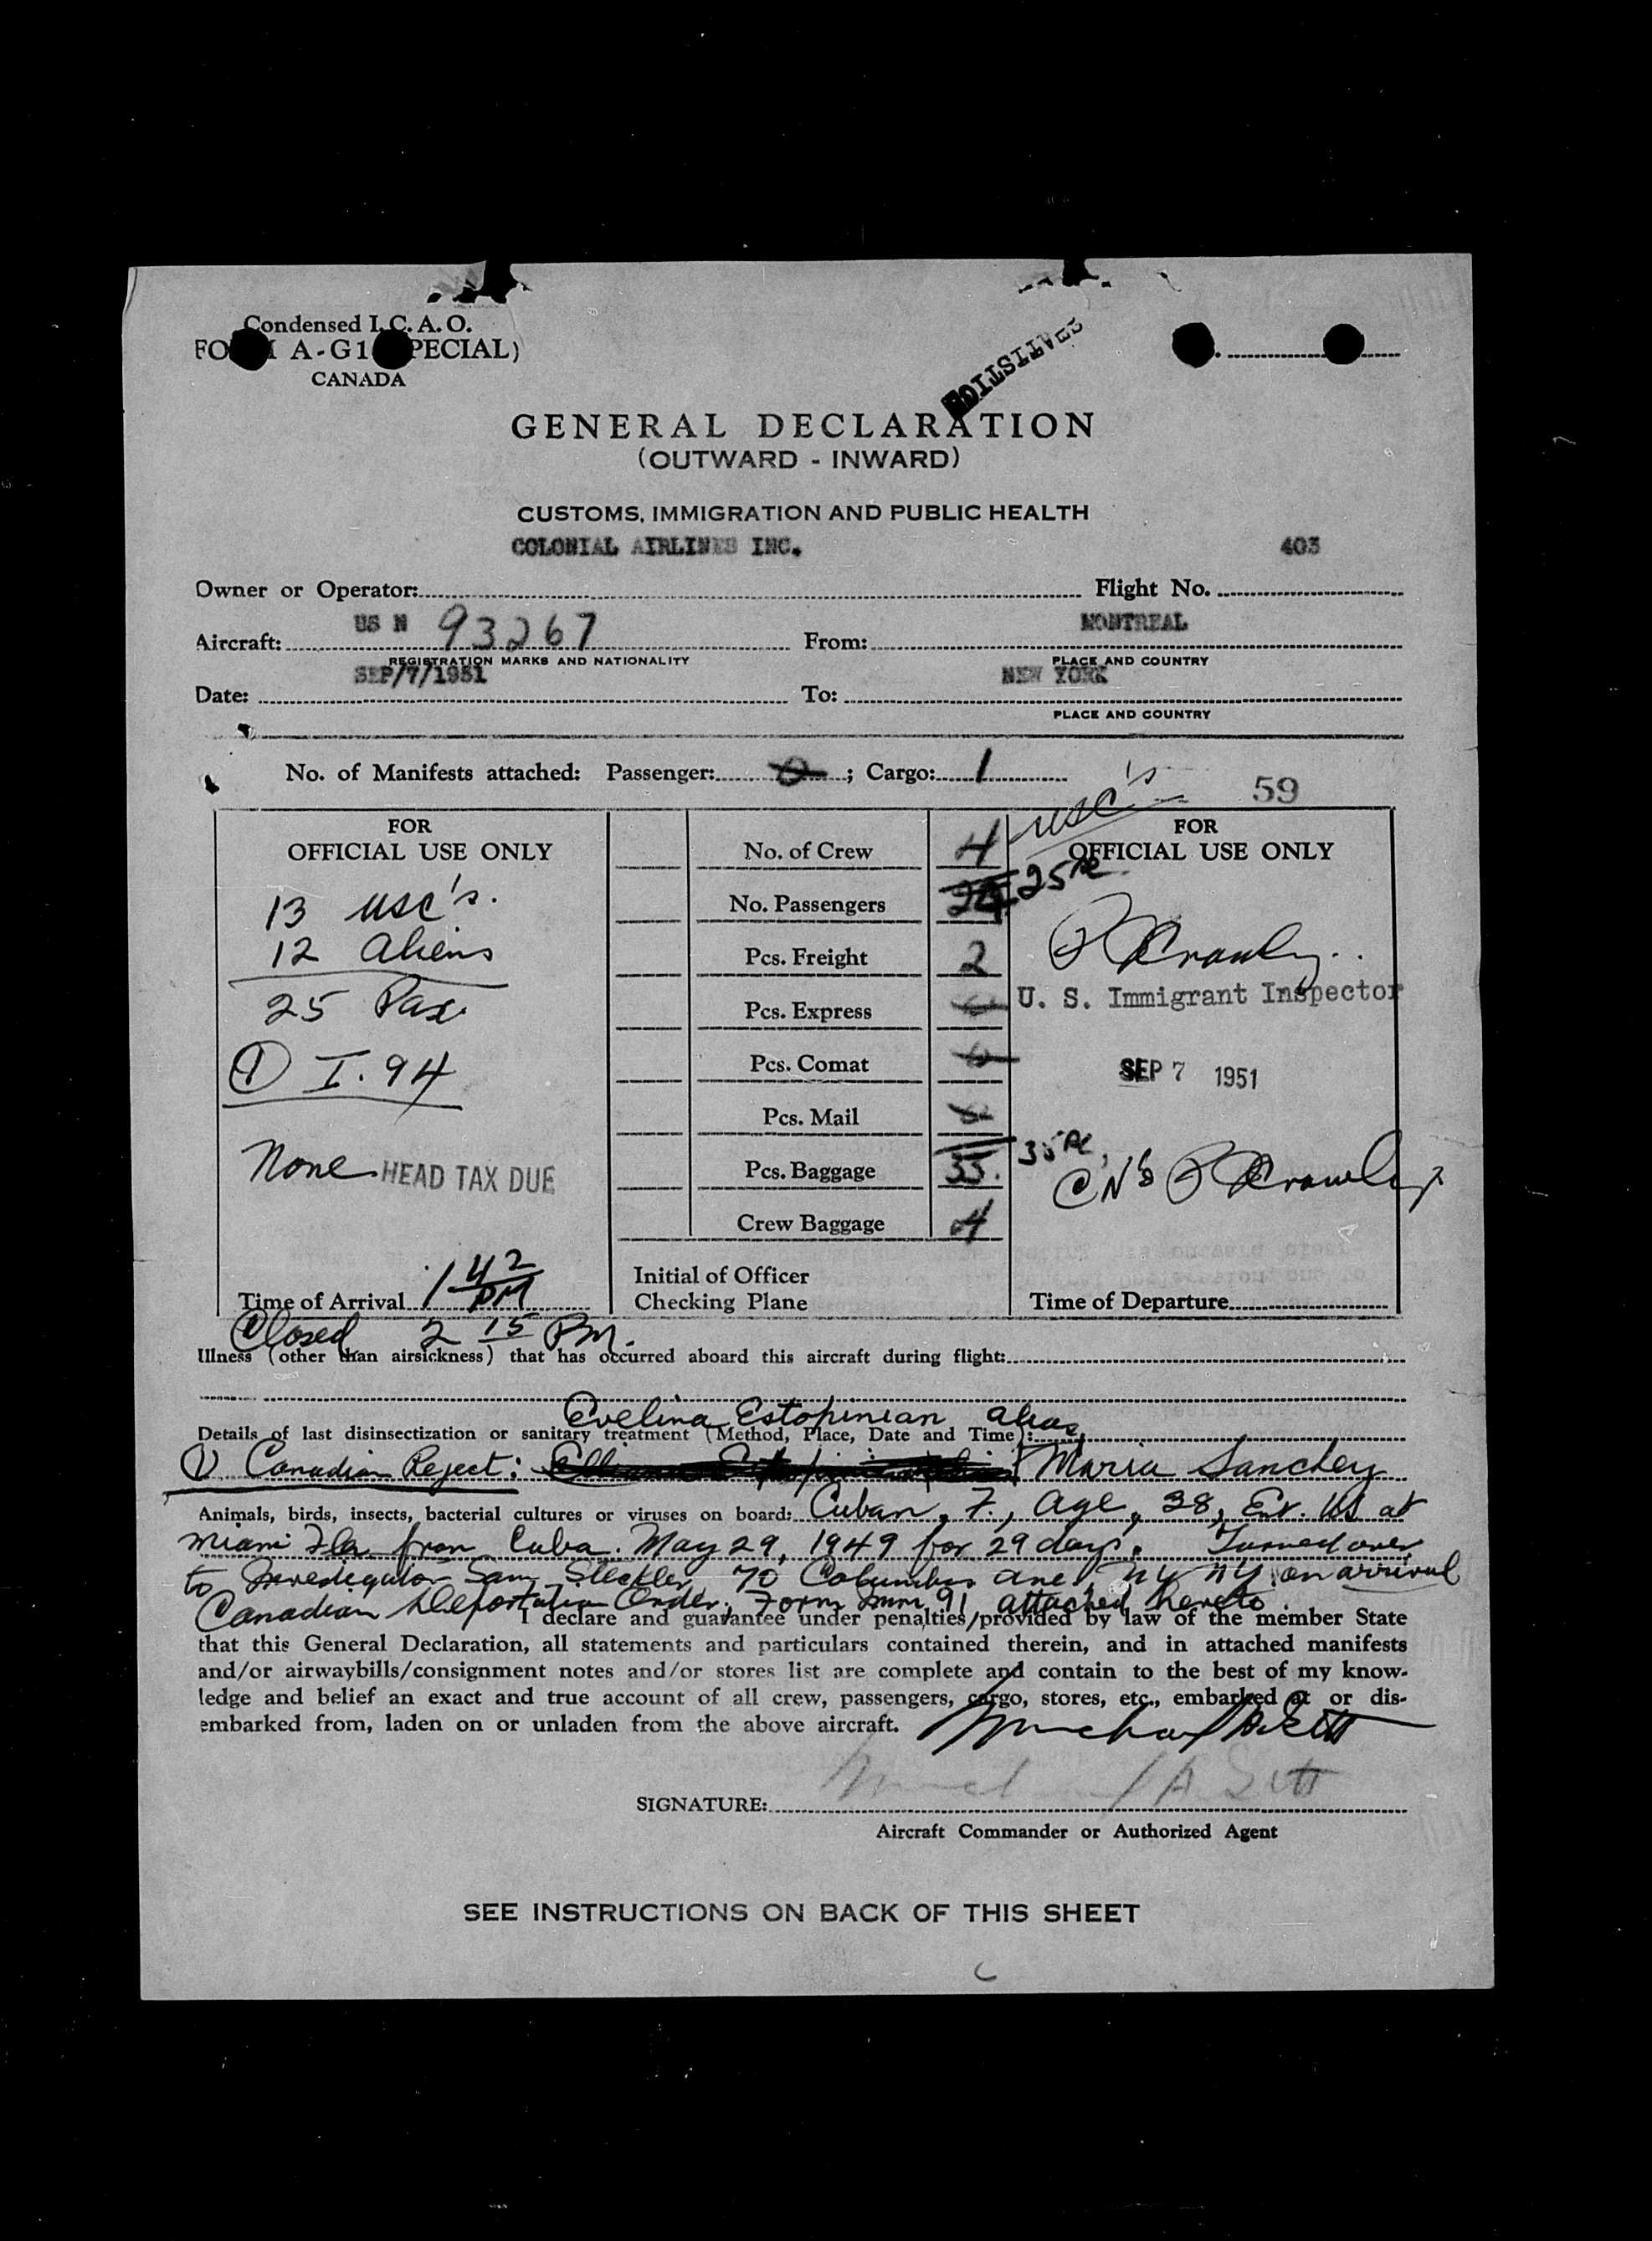 Condensed I.C.A.O.
FO A-G1 PECIAL)
CANADA
GENERAL DECLARATION
(OUTWARD - INWARD)
CUSTOMS, IMMIGRATION AND PUBLIC HEALTH
COLONIAL AIRLINES INC. 403
Owner or Operator: Flight No.
US N 93267 MONTREAL
Aircraft: From:
REGISTRATION MARKS AND NATIONALITY PLACE AND COUNTRY
SEP/7/1951 NEW YORK
Date: To:
PLACE AND COUNTRY
No. of Manifests attached: Passenger: 0; Cargo: 1
usc's 59
FOR
OFFICIAL USE ONLY
13 usc's.
12 aliens
25 Pax
1 I.94
None HEAD TAX DUE
Time of Arrival 1 42 PM
No. of Crew 4
No. Passengers 24 25
Pcs. Freight 2
Pcs. Express 0
Pcs. Comat 0
Pcs. Mail 0
Pcs. Baggage 35. 35
Crew Baggage 4
Initial of Officer
Checking Plane
FOR
OFFICIAL USE ONLY
U. S. Immigrant Inspector
SEP 7 1951
Time of Departure
Closed 2 15 PM.
Illness (other than airsickness) that has occurred aboard this aircraft during flight:
Evelina Estopinian alias
Details of last disinsectization or sanitary treatment (Method, Place, Date and Time):
1 Canadian Reject: Maria Sanchez
Animals, birds, insects, bacterial cultures or viruses on board: Cuban, F., age, 38, Ent. US at
Miami Fla from Cuba. May 29, 1949 for 29 days. Turned over
to Investigator Sam Steckler, 70 Columbus ave. NY NY. on arrival
Canadian Deportation Order, Form Imm. 91 attached hereto
I declare and guarantee under penalties provided by law of the member State
that this General Declaration, all statements and particulars contained therein, and in attached manifests
and/or airwaybills/consignment notes and/or stores list are complete and contain to the best of my know-
ledge and belief an exact and true account of all crew, passengers, cargo, stores, etc., embarked at or dis-
embarked from, laden on or unladen from the above aircraft.
SIGNATURE:
Aircraft Commander or Authorized Agent
SEE INSTRUCTIONS ON BACK OF THIS SHEET